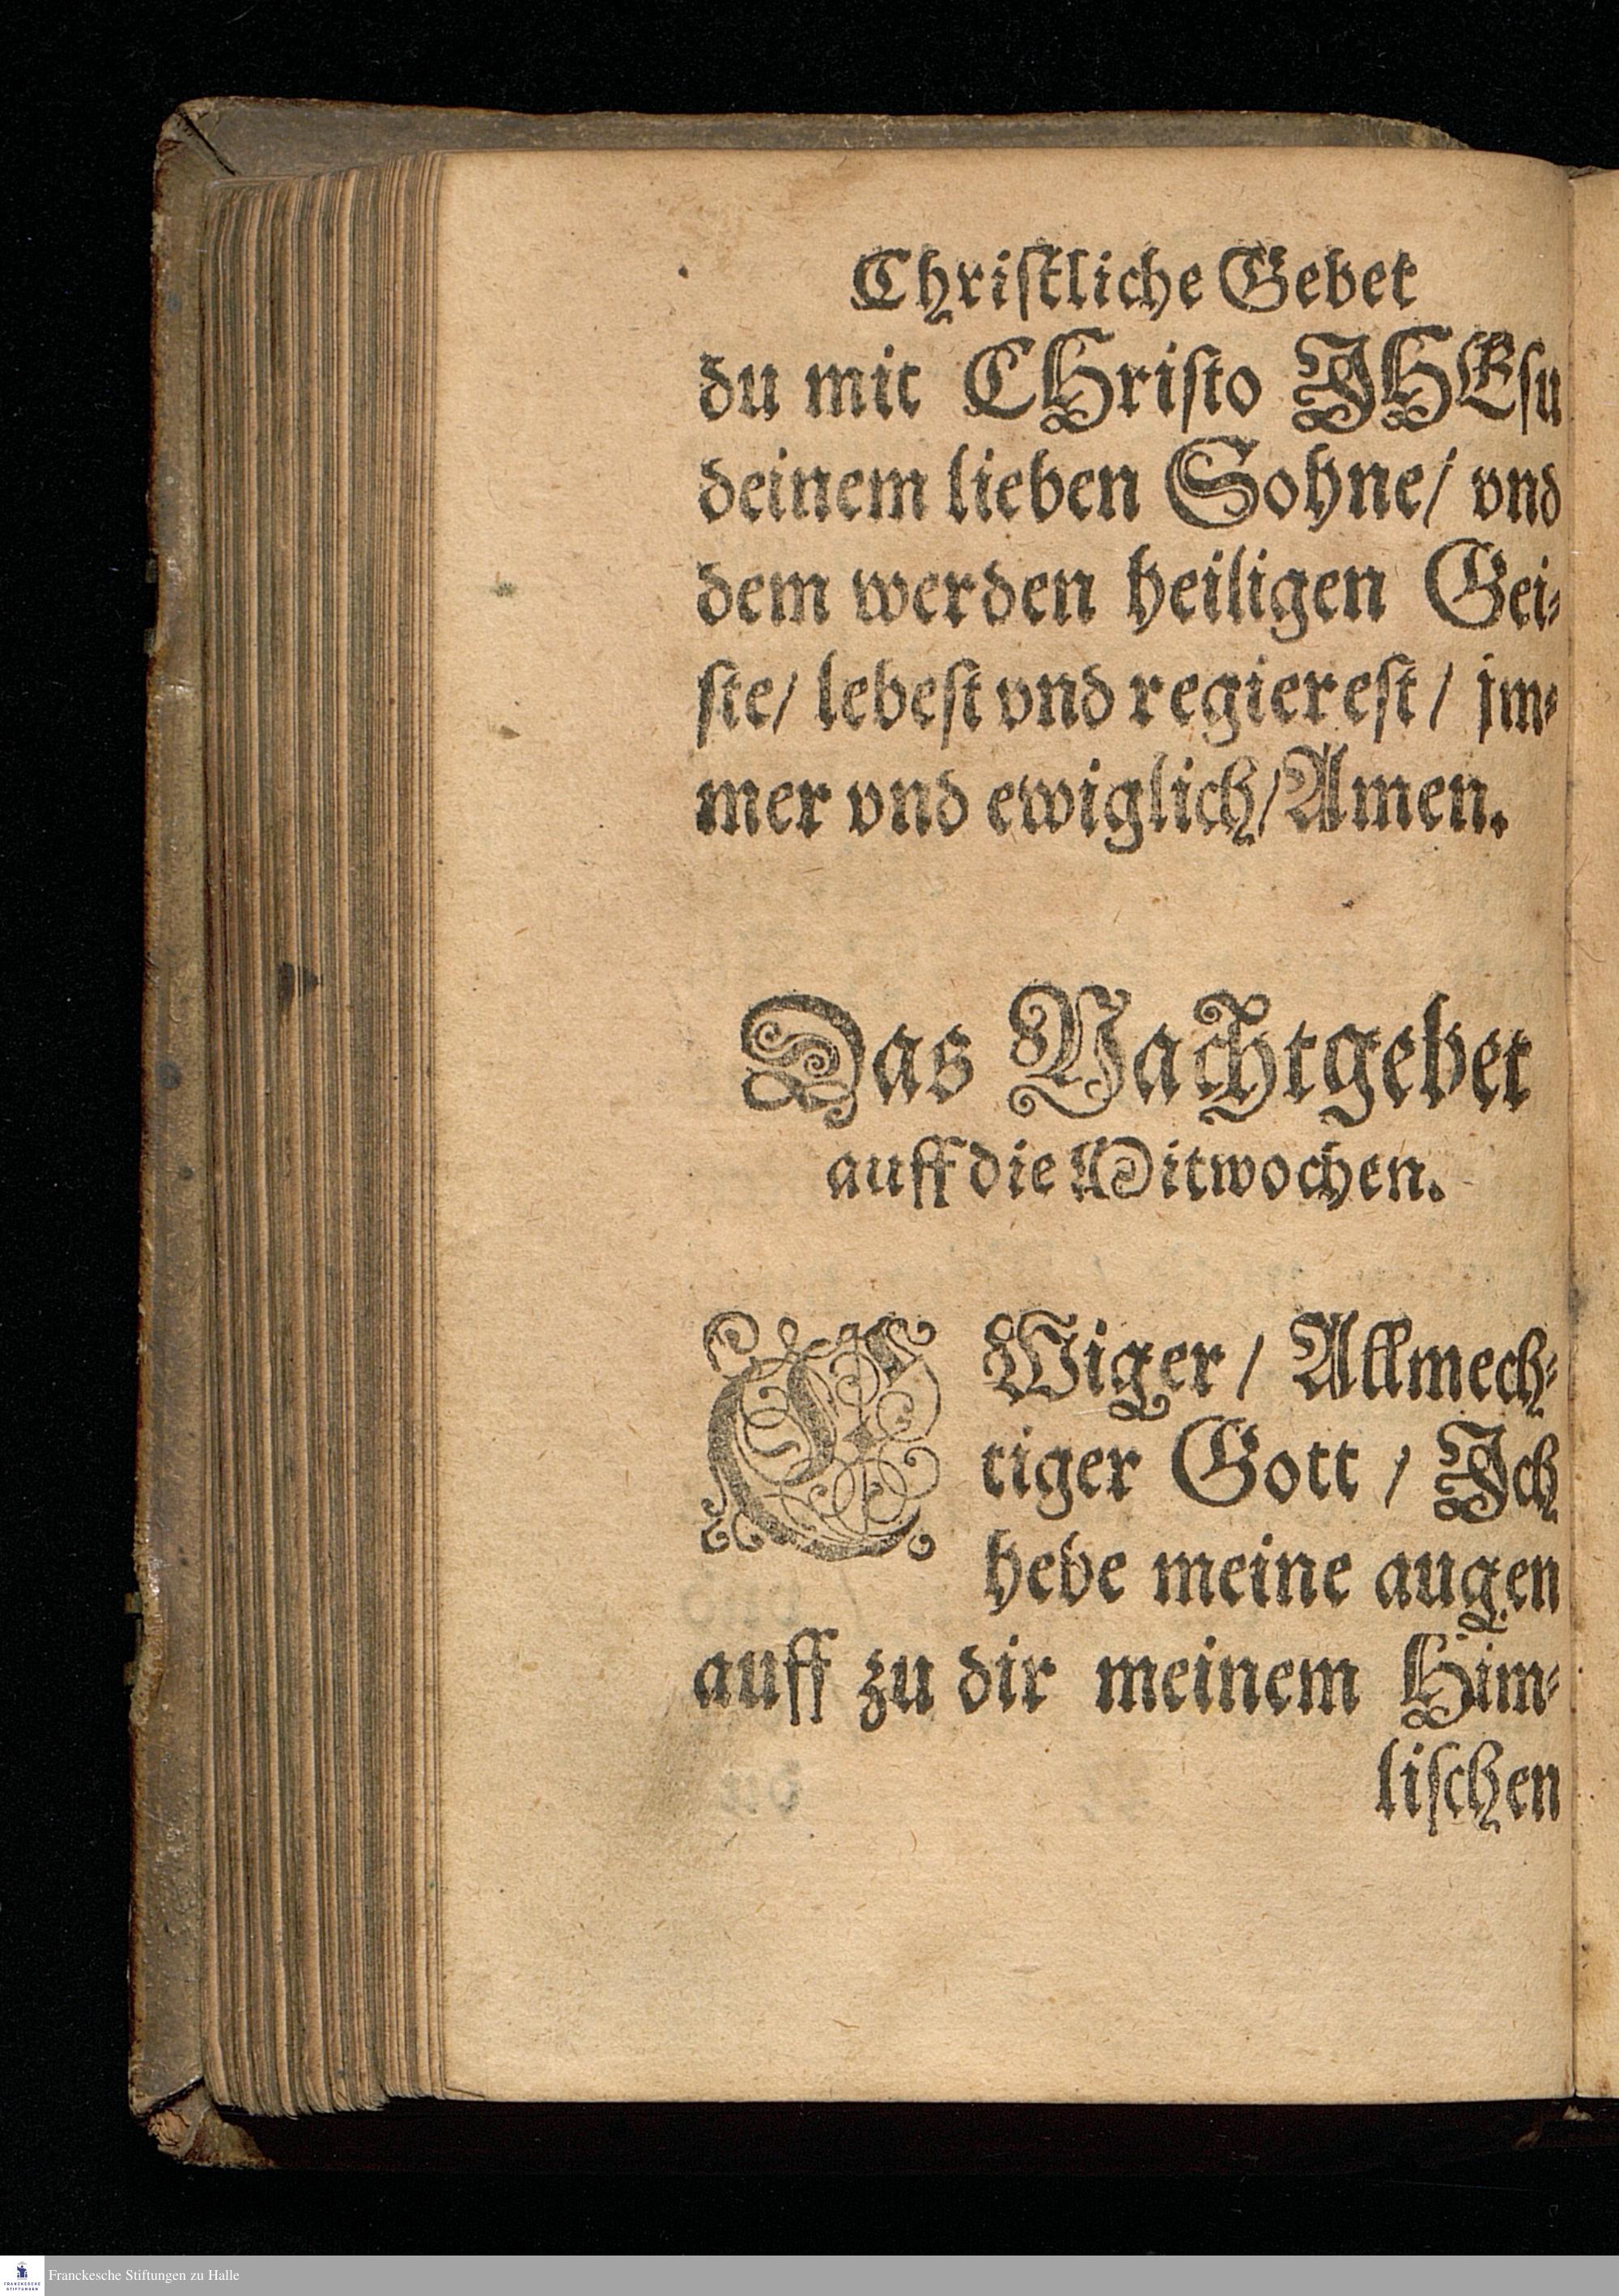 Christliche Gebet
du mit CHristo JHEsu
deinem lieben Sohne/ vnd
dem werden heiligen Gei⸗
ste/ lebest vnd regierest/ jm⸗
mer vnd ewiglich/ Amen.
Das Nachtgebet
auff die Mitwochen.
EWiger/ Allmech⸗
tiger Gott/ Jch
hebe meine augen
auff zu dir meinem Him⸗
lischen
Franckesche Stiftungen zu Halle
FRANCKESCHE
STIFTUNGEN